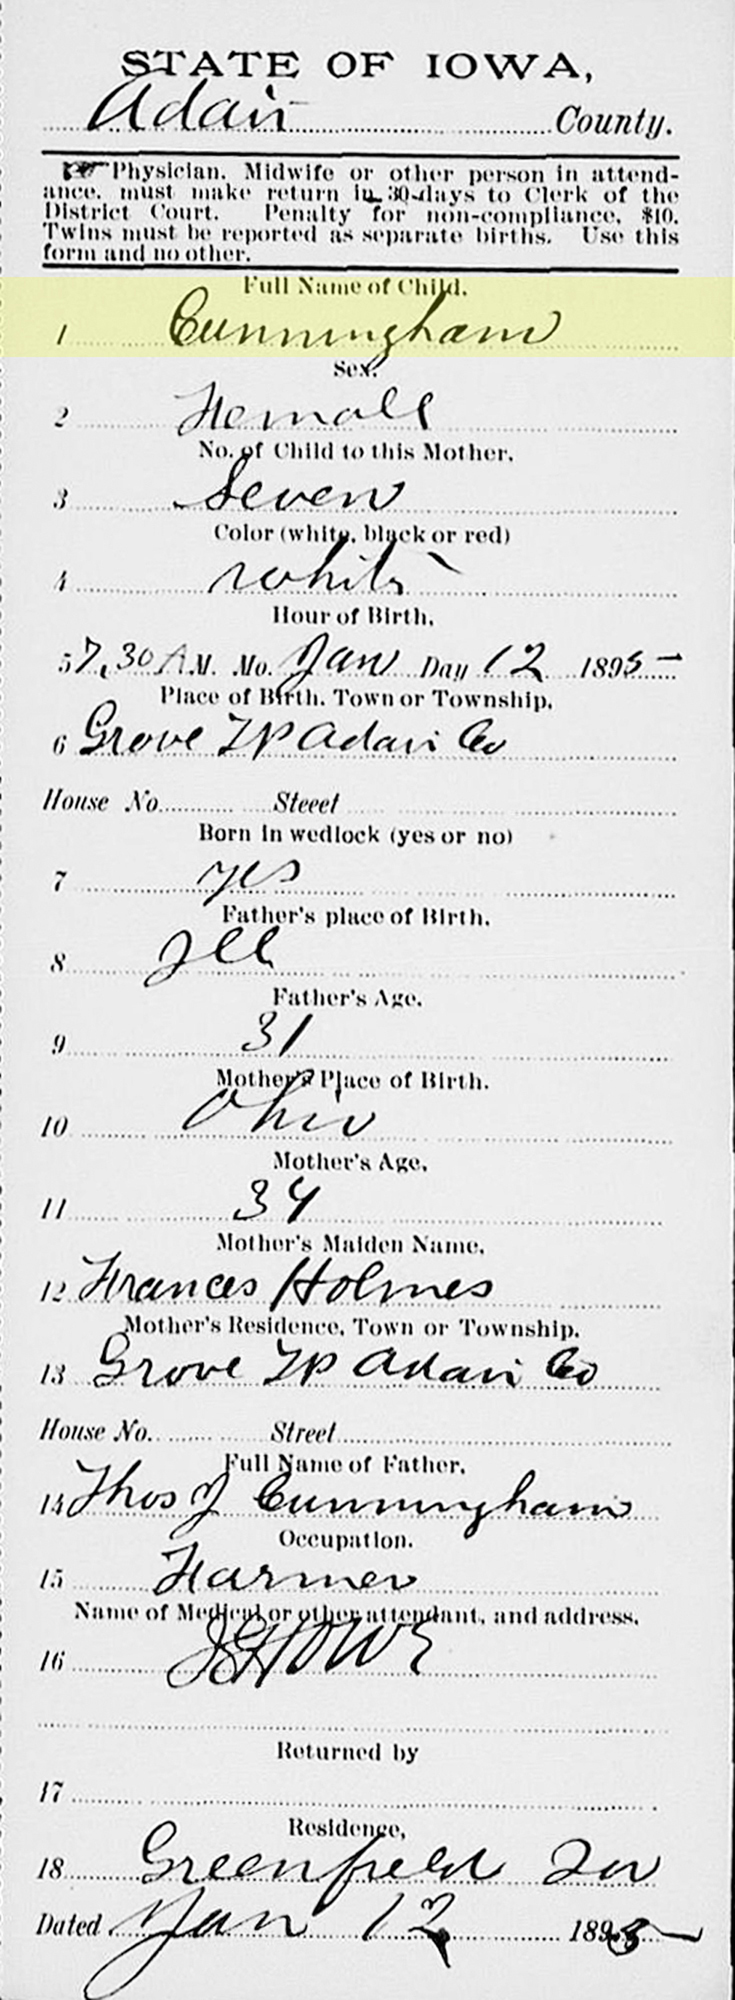 STATE OF IOWA,
Adair County.
☞Physician, Midwife or other person in attend-
ance, must make return in 30 days to Clerk of the
District Court. Penalty for non-compliance, $10.
Twins must be reported as separate births. Use this
form and no other.
Full Name of Child.
1 Cunningham
Sex.
2 Female
No. of Child to this Mother.
3 Seven
Color (white, black or red)
4 white
Hour of Birth.
5 7,30 A.M. Mo. Jan Day 12 1895
Place of Birth. Town or Township.
6 Grove TP Adair Co
House No. Steeet
Born in wedlock (yes or no)
7 yes
Father's place of Birth.
8 Ill
Father's Age.
9 31
Mother's Place of Birth.
10 Ohio
Mother's Age.
11 34
Mother's Maiden Name.
12 Frances Holmes
Mother's Residence, Town or Township.
13 Grove TP Adair Co
House No. Street
Full Name of Father.
14 Thos J Cunningham
Occupation.
15 Farmer
Name of Medical or other attendant, and address.
16 Howe
Returned by
17
Residence,
18 Greenfield Iow
Dated Jan 12 1895